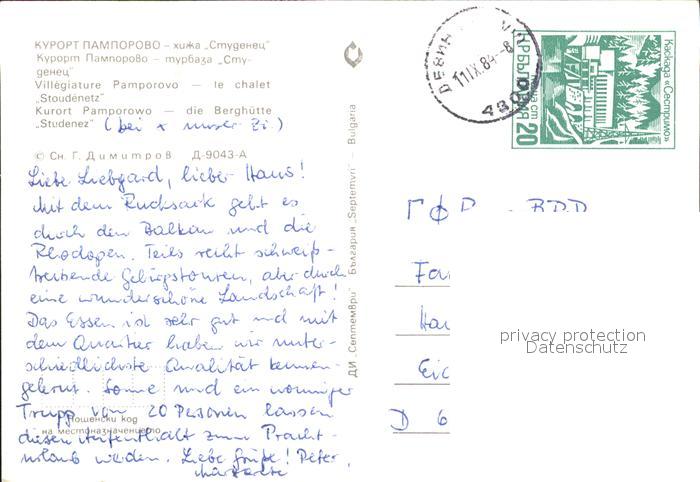 КУРОРТ ПАМПОРОВО – хижа „Студенец"
Курорт Пампорово – турбаза „Сту-
денец"
Villégiature Pamporovo — le chalet
„Stoudénetz"
Kurort Pamporowo — die Berghütte
„Studenez" (bei x unser Zi.)
© Сн. Г. Димитров Д-9043-А
Liebe Liebgard, lieber Hans!
Mit dem Rucksack geht es
durch den Balkan und die
Rhodopen. Teils recht schweiß-
treibende Gebirgstouren, aber durch
eine wunderschöne Landschaft!
Das Essen ist sehr gut und mit
dem Quartier haben wir unter-
schiedlichste Qualität kennen-
gelernt. Sonne und ein wonniger
Trupp von 20 Personen lassen
diesen Aufenthalt zum Pracht-
urlaub werden. Liebe Grüße! Peter,
Пощенски код
на местоназначението
ДИ „Септември" България „Septemvri" – Bulgaria
ДЕВИН
11.IX.84.-8
4800
Каскада «Сестримо»
НР БЪЛГАРИЯ
20
ГФР - BRD
Fa
Hau
Eic
D 6
privacy protection
Datenschutz